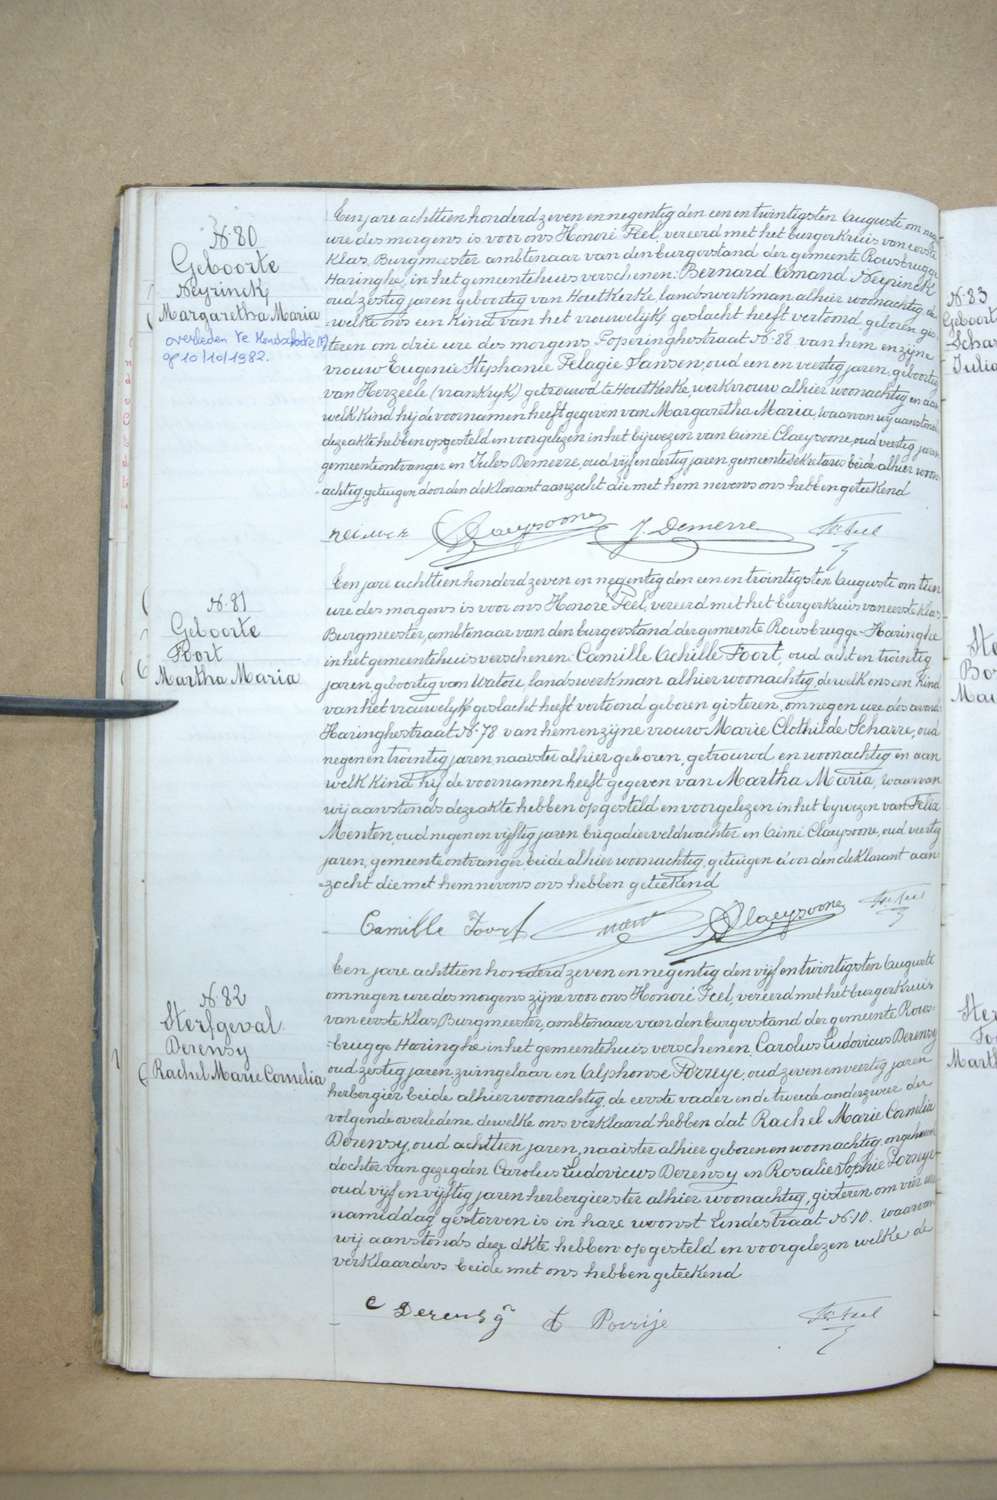 N. 80
Geboorte
Neyrinck
Margaretha Maria
overleden te Hondschoote (F)
op 10/10/1982.
Een jare achttien honderd zeven en negentig den een en twintigsten Auguste om negen
ure des morgens is voor ons Honoré Feel, vereerd met het burgerkruis van eerste
Klas, Burgmeester ambtenaar van den burgerstand der gemeente Rousbrugge
Haringhe, in het gemeentehuis verschenen. Bernard Amand Neyrinck
oud zestig jaren geboortig van Houtkerke, landswerkman alhier woonachtig, de
welke ons een Kind van het vrouwelijk geslacht heeft vertoond, geboren gis
teren om drie ure des morgens Poperinghestraat N. 88 van hem en zijne
vrouw Eugenie Stephanie Pelagie Jansen, oud een en veertig jaren, geboortig
van Herzeele (vrankryk) getrouwd te Houtkerke, werkvrouw alhier woonachtig en aan
welk Kind hij de voornamen heeft gegeven van Margaretha Maria, waarvan wij aanstonds
deze akte hebben opgesteld en voorgelezen in het bijwezen van Aimé Claeysoone, oud veertig jaren
gemeenteontvanger en Jules Demerre, oud vijf en dertig jaren gemeentesekretaris beide alhier woon-
achtig getuigen door den deklarant aanzocht die met hem nevens ons hebben geteekend
Claeysoone J. Demerre Hre Feel
N. 81
Geboorte
Foort
Martha Maria
Een jare achttien honderd zeven en negentig den een en twintigsten Auguste om tien
ure des morgens is voor ons Honoré Feel, vereerd met het burgerkruis van eerste klas
Burgmeester, ambtenaar van den burgerstand der gemeente Rousbrugge-Haringhe
in het gemeentehuis verschenen Camille Achille Foort, oud acht en twintig
jaren geboortig van Watou, landswerkman alhier woonachtig, de welk ons een Kind
van het vrouwelijk geslacht heeft vertoond geboren gisteren, om negen ure des avonds
Haringhestraat N. 78 van hem en zyne vrouw Marie Clothilde Scharre, oud
negen en twintig jaren naaister alhier geboren, getrouwd en woonachtig en aan
welk Kind hij de voornamen heeft gegeven van Martha Maria, waarvan
wij aanstonds deze akte hebben opgesteld en voorgelezen in het bywezen van Felix
Menton, oud negen en vijftig jaren brigadier veldwachter en Aimé Claeysoone, oud veertig
jaren, gemeente ontvanger, beide alhier woonachtig, getuigen door den deklarant aan-
zocht die met hem nevens ons hebben geteekend
Camille Foort Claeysoone Hre Feel
N. 82
Sterfgeval
Derensy
Rachel Marie Cornelia
Een jare achttien honderd zeven en negentig den vijf en twintigsten Auguste
om negen ure des morgens zijne voor ons Honoré Feel, vereerd met het burgerkruis
van eerste Klas, Burgmeester, ambtenaar van den burgerstand der gemeente Rous-
brugge Haringhe in het gemeentehuis verschenen. Carolus Ludovicus Derensy
oud zestig jaren zwingelaar en Alphonse Forreye, oud zeven en veertig jaren
herbergier beide alhier woonachtig, de eerste vader en de tweede anderzweer der
volgende overledene dewelke ons verklaard hebben dat Rachel Marie Cornelia
Derensy, oud achttien jaren, naaister alhier geboren en woonachtig, ongehuwd
dochter van gezegden Carolus Ludovicus Derensy en Rosalie Sophie Forreye
oud vijf en vijftig jaren herbergierster alhier woonachtig, gisteren om vier ure
namiddag gestorven is in hare woonst Lindestraat N. 10. waarvan
wij aanstonds deze akte hebben opgesteld en voorgelezen welke de
verklaarders beide met ons hebben geteekend
C Derensy Hre Feel
N. 83
Geboort
Schar
Julia